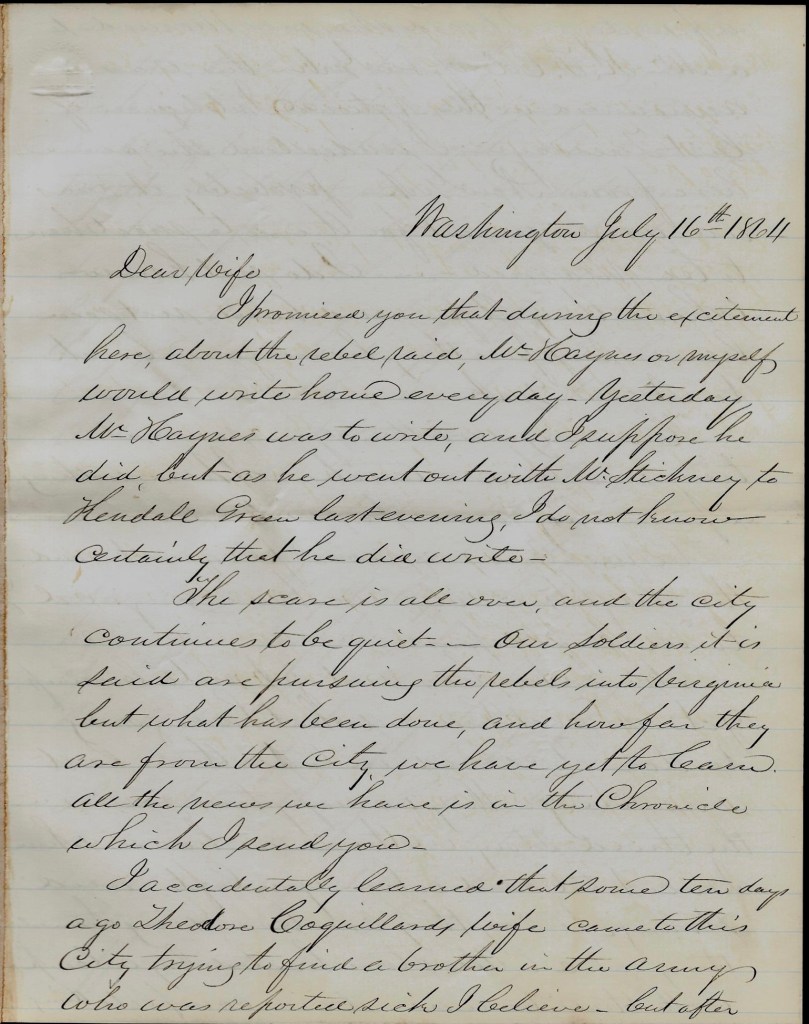 Washington July 16th 1864
Dear Wife
I promised you that during the excitement
here, about the rebel raid, Mr Haynes or myself
would write home every day - Yesterday
Mr Haynes was to write, and I suppose he
did, but as he went out with Mr Stickney to
Kendall Green last evening, I do not know
certainly that he did write -
The scare is all over, and the city
continues to be quiet - - Our soldiers it is
said are pursuing the rebels into Virginia
but what has been done, and how far they
are from the City, we have yet to learn.
all the news we have is in the Chronicle
which I send you -
I accidentally learned that some ten days
ago Theodore Coquillards wife came to this
City trying to find a brother in the army
who was reported sick I believe - but after